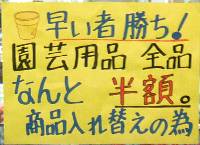 早い者勝ち!
園芸用品 全品
なんと 半額。
商品入れ替えの為